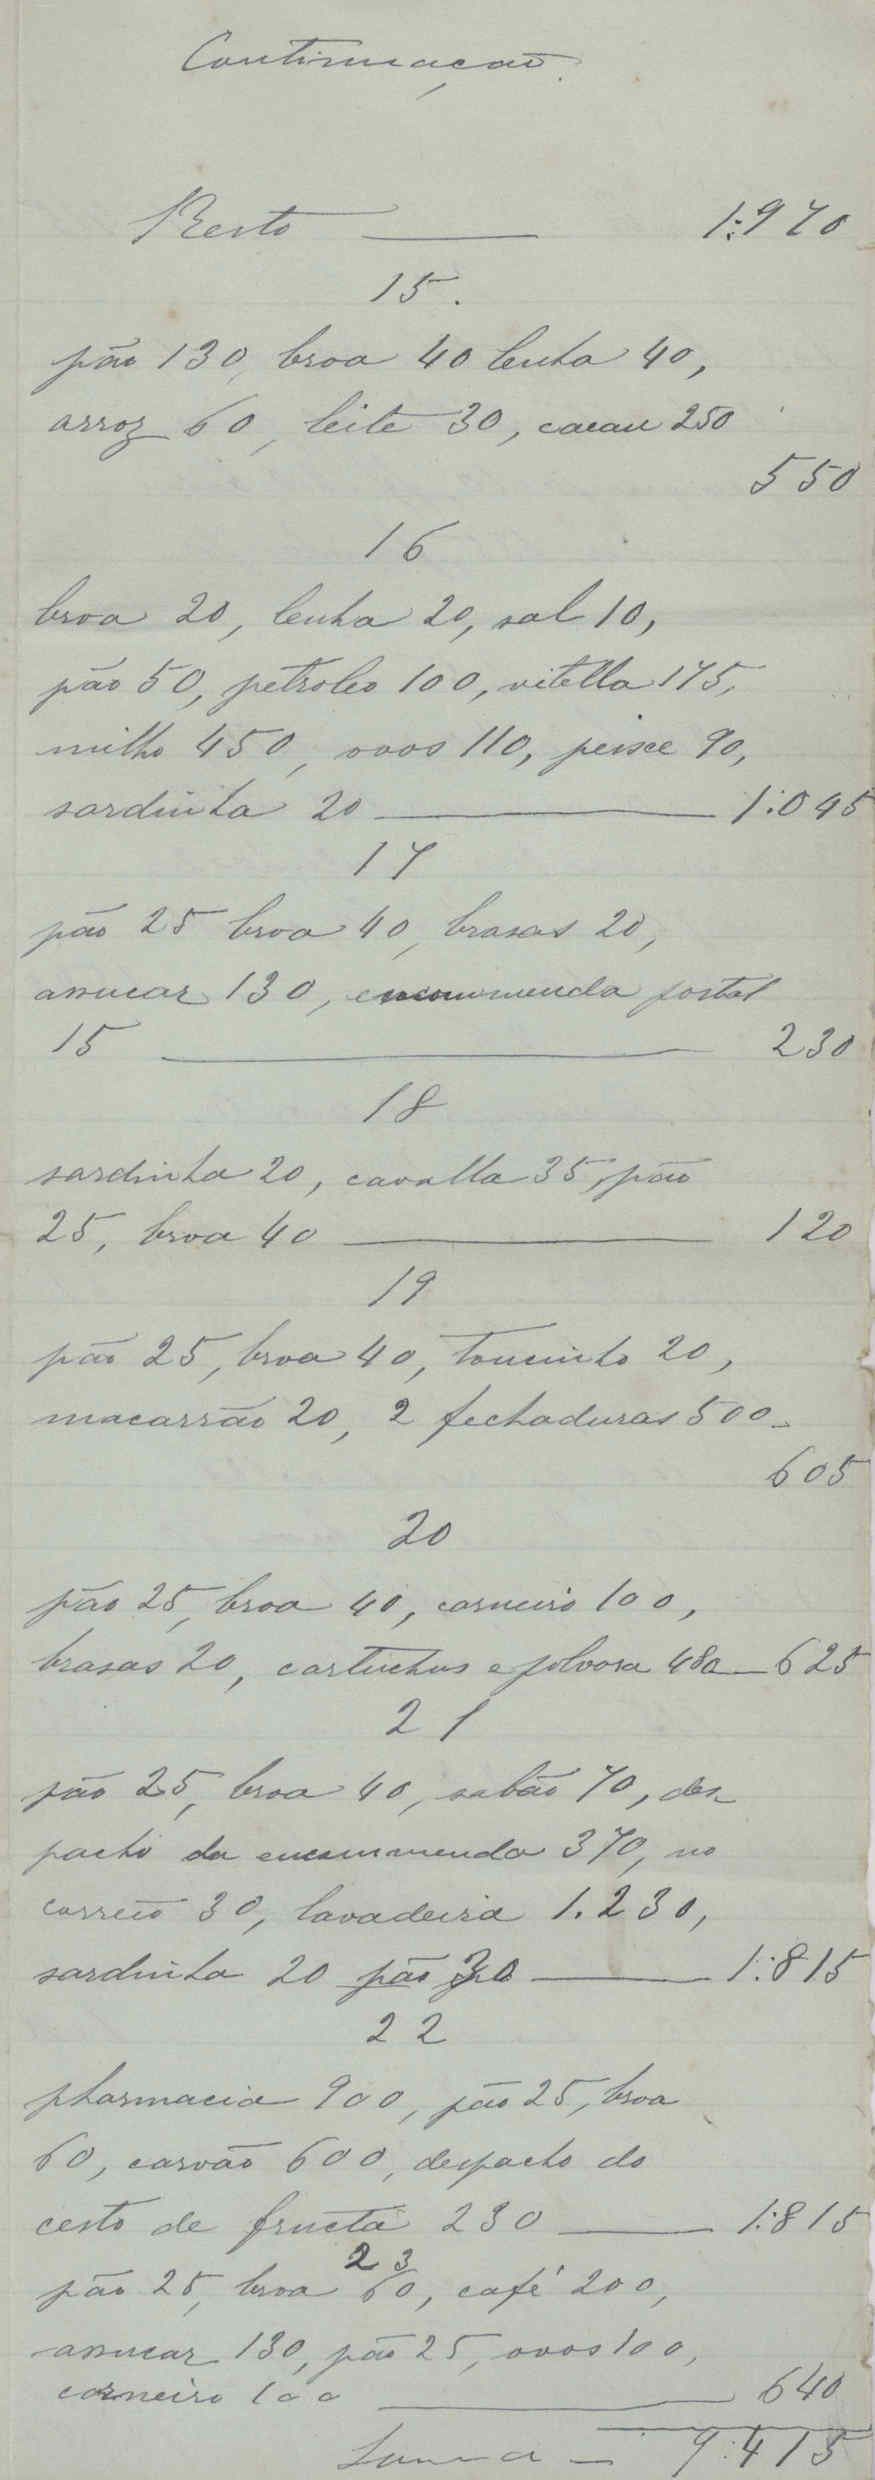 Continuação.
Resto 1:970
15.
pão 130, broa 40 lenha 40,
arroz 60, leite 30, cacau 250
550
16
broa 20, lenha 20, sal 10,
pão 50, petroleo 100, vitella 175,
milho 450, ovos 110, peixe 90,
sardinha 20 1:045
17
pão 25 broa 40, brasas 20,
assucar 130, encommenda postal
15 230
18
sardinha 20, cavalla 35, pão
25, broa 40 120
19
pão 25, broa 40, toucinho 20,
macarrão 20, 2 fechaduras 500
605
20
pão 25, broa 40, carneiro 100,
brasas 20, cartuchos e polvora 480 625
21
pão 25, broa 40, sabão 70, des-
pacho da encommenda 370, no
correio 30, lavadeira 1.230,
sardinha 20 pão 30 1:815
22
pharmacia 900, pão 25, broa
60, carvão 600, despacho do
cesto de fructa 230 1:815
23
pão 25, broa 60, café 200,
assucar 130, pão 25, ovos 100,
carneiro 100 640
Somma 9:415